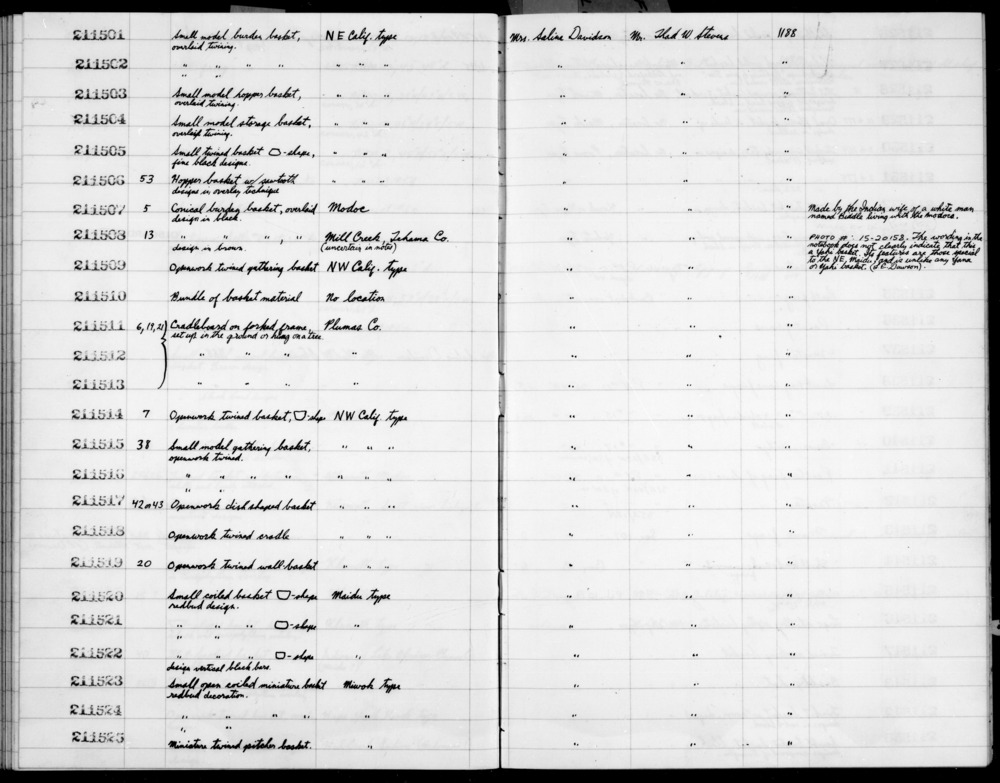 211501 Small model burden basket, NE Calif. type Mrs. Selina Davidson Mr. Thad W Stevens 1188
overlaid twining.
211502 " " " " " " " " " "
" "
211503 Small model hopper basket, " " " " " "
overlaid twining.
211504 Small model storage basket, " " " " " "
overlaid twining.
211505 Small twined basket -shape, " " " " " "
fine black designs.
211506 53 Hopper basket w/ sawtooth " " " " " "
designs in overlay technique
211507 5 Conical burden basket, overlaid Modoc " " " Made by the Indian wife of a white man
design in black. named Biddle living with the Modocs.
211508 13 " " " , " Mill Creek, Tehama Co. " " " PHOTO #: 15-20158. The wording in the
design in brown. (uncertain in notes) notebook does not clearly indicate that this
a Yahi basket. Its features are those special
211509 Openwork twined gathering basket NW Calif. type " " " to the NE. Maidu and is unlike any Yana
or Yahi basket. (L.E. Dawson).
211510 Bundle of basket material No location " " "
211511 6, 19, 21 Cradleboard on forked frame, Plumas Co. " " "
set up in the ground or hung on a tree
211512 " " " " " " "
211513 " " " " " " "
211514 7 Openwork twined basket, -shape NW Calif. type " " "
211515 38 Small model gathering basket, " " " " " "
openwork twined.
211516 " " " " " " " " " "
" "
211517 42 or 43 Openwork dish shaped basket " " " " " "
211518 Openwork twined cradle " " " " " "
211519 20 Openwork twined wall-basket " " " " " "
211520 Small coiled basket -shape Maidu type " " "
redbud design.
211521 " " " -shape " " " "
" "
211522 " " " -shape " " " "
design vertical black bars.
211523 Small open coiled miniature basket Miwok type " " "
redbud decoration.
211524 " " " " " " " "
" "
211525 Miniature twined pitcher basket. " " " "